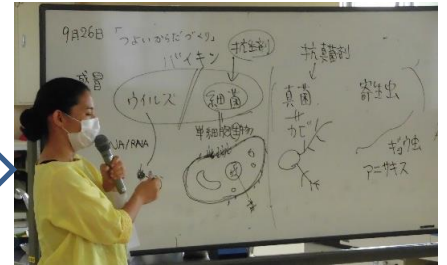 9月26日 「つよいからだづくり」
バイキン
抗生剤
抗真菌剤
感冒
ウイルス
細菌
真菌
寄生虫
カビ
単細胞生物
NA/RNA
ギョウ虫
アニサキス